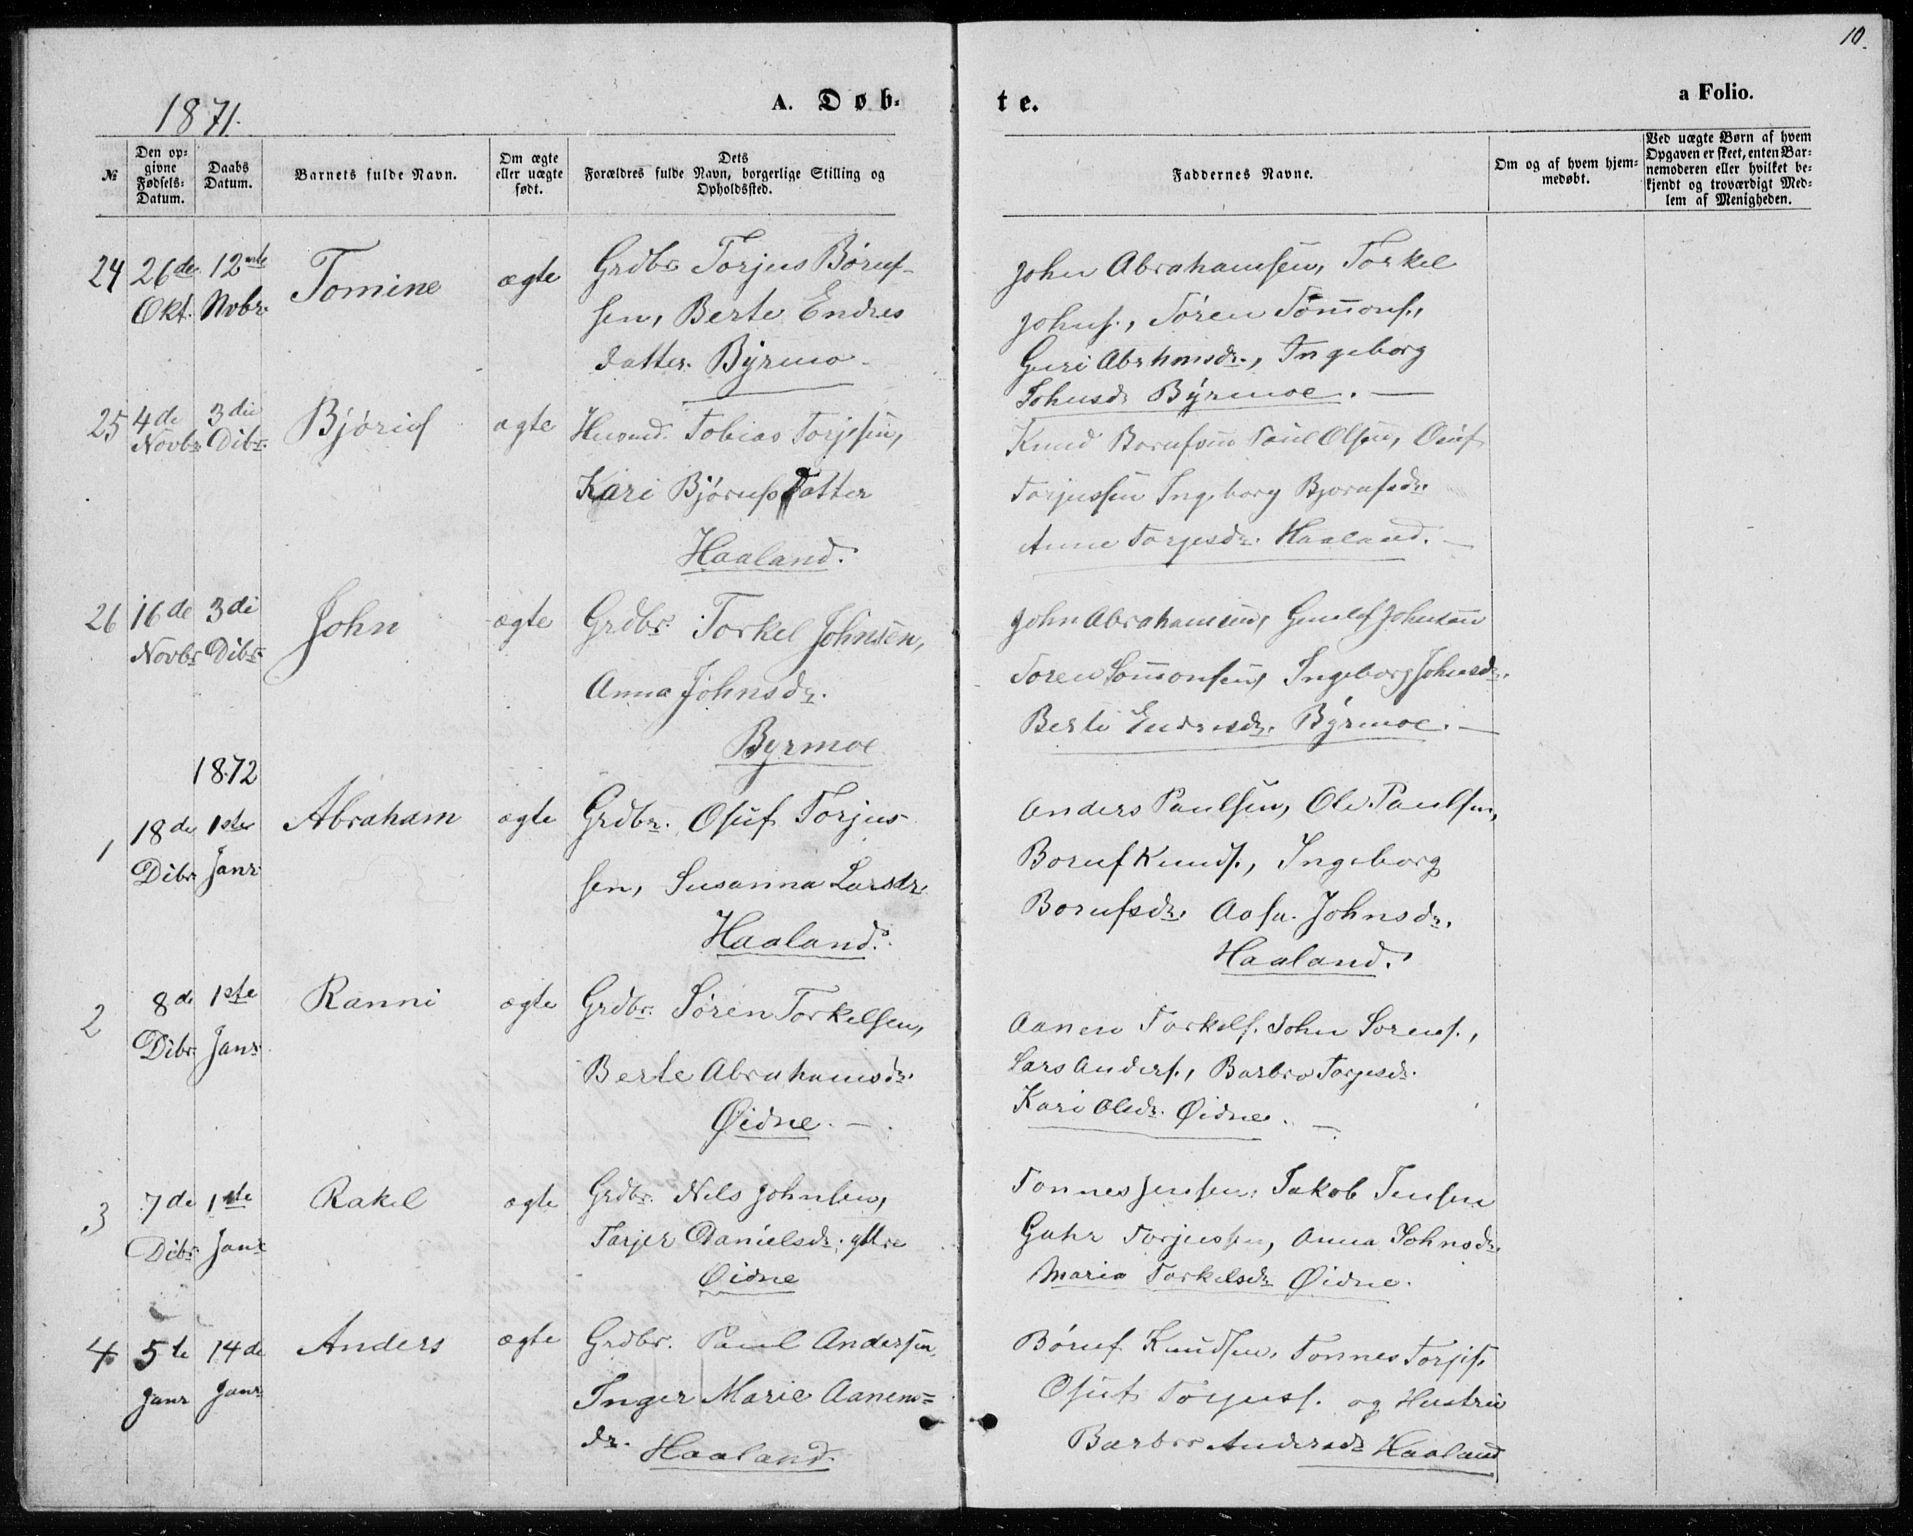 10.
1871.
A. Døb-
te.
a Folio.
№
Den op-
givne
Fødsels-
Datum.
Daabs
Datum.
Barnets fulde Navn.
Om ægte
eller uægte
født.
Dets
Forældres fulde Navn, borgerlige Stilling og
Opholdssted.
Faddernes Navne.
Om og af hvem hjem-
medøbt.
Ved uægte Børn af hvem
Opgaven er skeet, enten Bar-
nemoderen eller hvilket be-
kjendt og troværdigt Med-
lem af Menigheden.
24 26de 12
Okt. Nvbr.
Tomine
ægte
Grdbr. Torjus Børuf-
sen, Berte Endres
datter. Byrmo
John Abrahamsen, Torkel
Johns., Sören Tömons.,
Guri Abrhmsdr., Ingeborg
Johnsdr Byrmoe.
25 4de 3die
Novbr Dibr.
Björuf
ægte
Husmd. Tobias Torjesen,
Kari Bjørufsdatter
Haaland.
Knud Borufsen Paul Olsen, Osuf
Torjussen Ingeborg Bjorufsdr.
Anne Torjesdr. Haaland.
26 16de 3di
Novbr Dibr.
John
ægte
Grdbr. Torkel Johnsen,
Anna Johnsdr.
Byrmoe
John Abrahamsen, Johnsen
Soren Somonsen, Ingeborg Johnsdr.
Berte Endresdr. Byrmoe.
1872
1 18de 1ste
Dibr. Janr
Abraham
ægte
Grdbr. Osuf Torjus
sen, Susanna Larsdr.
Haaland.
Anders Paulsen, Ole Paulsen,
Boruf Knuds., Ingeborg
Borufsdr. Aasa Johnsdr.
Haaland.
2 8de 1ste
Dibr. Janr
Ranni
ægte
Grdbr. Sören Torkelsen,
Berte Abrahamsdr.
Øidne.
Aanen Torkels. John Sorens.,
Lars Anders., Barbro Torjesdr.
Kari Olsdr. Øidne.
3 7de 1ste
Dibr. Janr
Rakel
ægte
Grdbr. Nils Johnsen,
Tarjer Danielsdr. yttre
Øidne
Tonnes Jensen, Jakob Jensen
Torjussen, Anna Johnsdr.
Maria Torkelsdr Øidne.
4 5te 14de
Janr Janr
Anders
ægte
Grdbr. Paul Andersen,
Inger Marie Aanens=
dr. Haaland.
Böruf Knudsen, Tonnes Torjes.
Osuf Torjuss. og Hustru
Barbro Andersdr Haaland